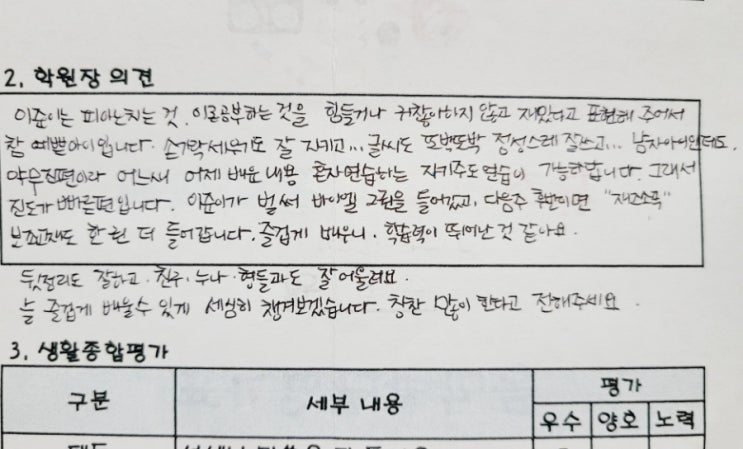 2. 학원장 의견
이준이는 피아노치는 것. 이론공부하는 것을 힘들거나 귀찮아하지 않고 재밌다고 표현해 주어서
참 예쁜아이입니다. 손가락세우기도 잘 지키고... 글씨도 또박또박 정성스레 잘쓰고... 남자아이인데도.
야무진편이라 어느새 어제 배운 내용 혼자연습하는 자기주도연습이 가능하답니다. 그래서
진도가 빠른편입니다. 이준이가 벌써 바이엘 2권을 들어갔고, 다음주 후반이면 "재즈소곡"
보조교재도 한 권 더 들어갑니다. 즐겁게 배우니. 학습력이 뛰어난 것 같아요.
뒷정리도 잘하고. 친구. 누나. 형들과도 잘어울려요.
늘 즐겁게 배울수 있게 세심히 챙겨보겠습니다. 칭찬 많이 한다고 전해주세요.
3. 생활종합평가
구분 세부 내용 평가
우수 양호 노력